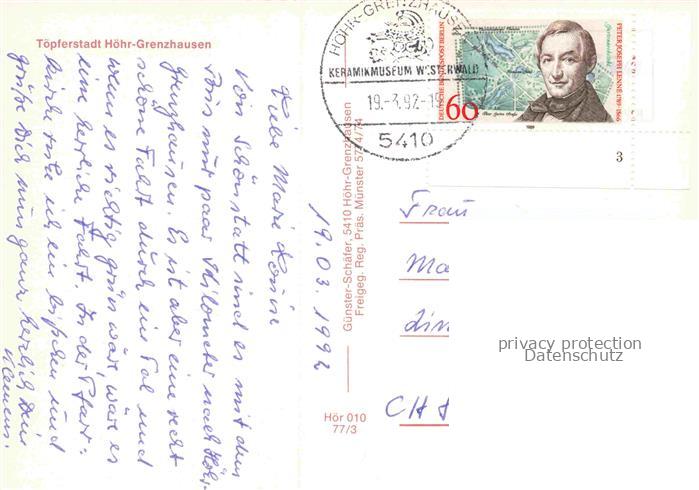 Töpferstadt Höhr-Grenzhausen
Liebe Marie Louise
Von Schönstatt sind es mit dem
Bus nur paar Kilometer nach Höhr-
Grenzhausen. Es ist aber eine recht
schöne Fahrt durch ein Tal und
wenn es richtig grün wär, wäre es
eine herrliche Fahrt. In der Pfarr=
kirche ruhe ich ein bißchen und
grüße Dich nun ganz herzlich Dein
Klemens.
19.03.1992
Günster-Schäfer, 5410 Höhr-Grenzhausen
Freigeg. Reg. Präs. Münster 5774/74
Hör 010
77/3
HÖHR-GRENZHAUSEN
KERAMIKMUSEUM WESTERWALD
19.-3.92-15
5410
DEUTSCHE BUNDESPOST BERLIN
60
PETER JOSEPH LENNÉ 1789-1866
3
Frau
Ma
Lin
CH
privacy protection
Datenschutz